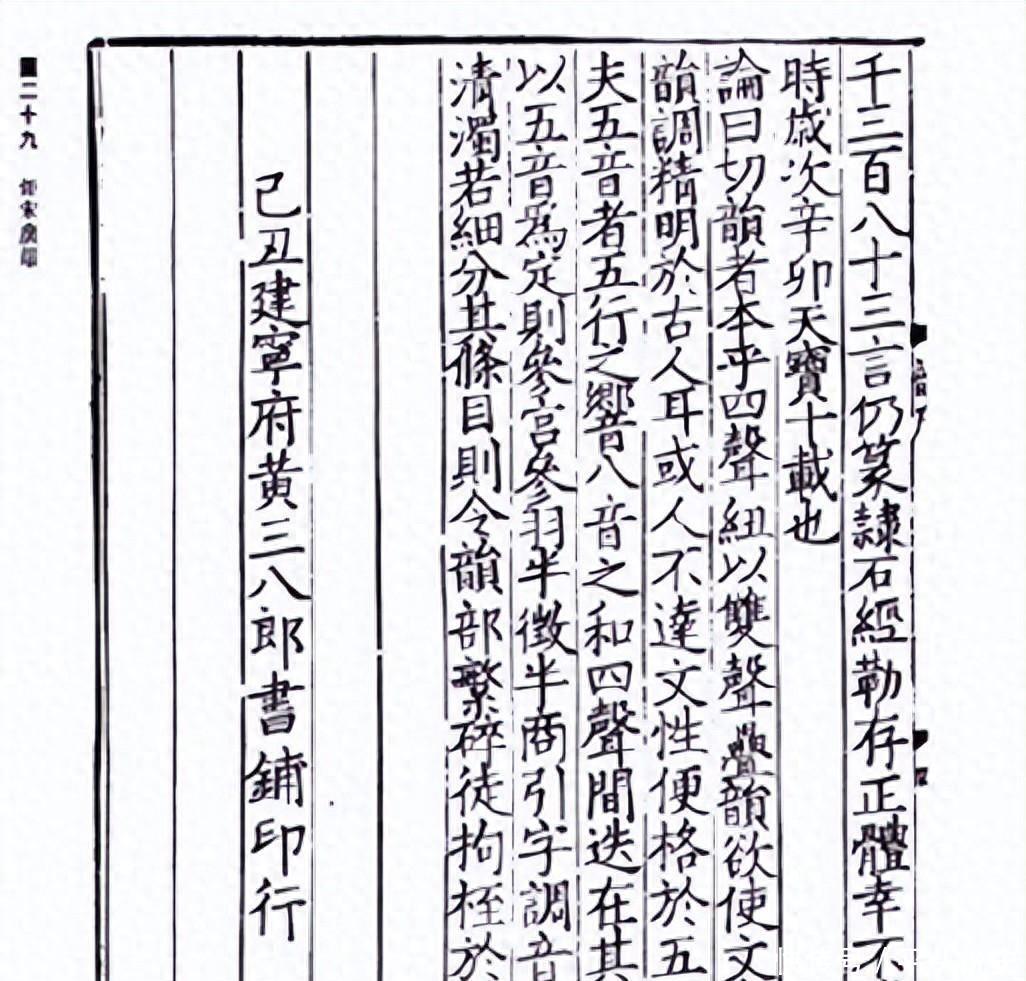 千三百八十三言仍篆隷石經勒存正體幸不
時歲次辛卯天寶十載也
論曰切韻者本乎四聲紐以雙聲疊韻欲使文
韻調精明於古人耳或人不達文性便格於五
夫五音者五行之響八音之和四聲間迭在其
以五音爲定則參宮參羽半徵半商引字調音
清濁若細分其條目則令韻部繁碎徒拘桎於
己丑建寧府黃三八郎書鋪印行
圖二十九